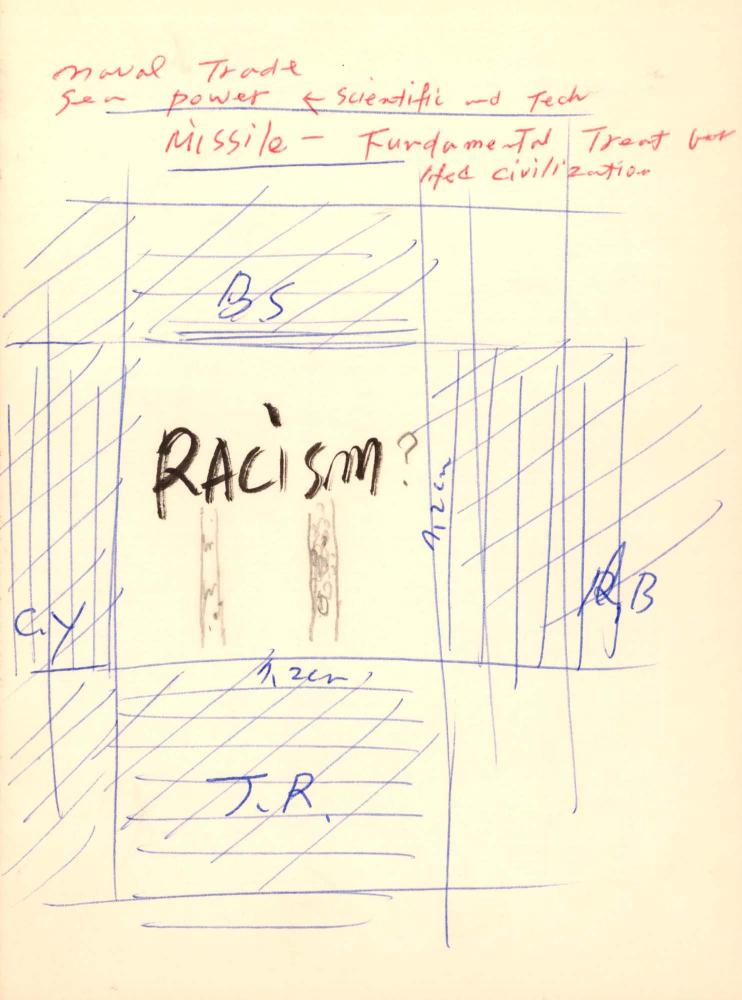 Naval Trade
Sea power ← Scientific and Tech
Missile — Fundamental Treat
civilization
B.S
RACiSm?
C.Y
R,B
J.R.